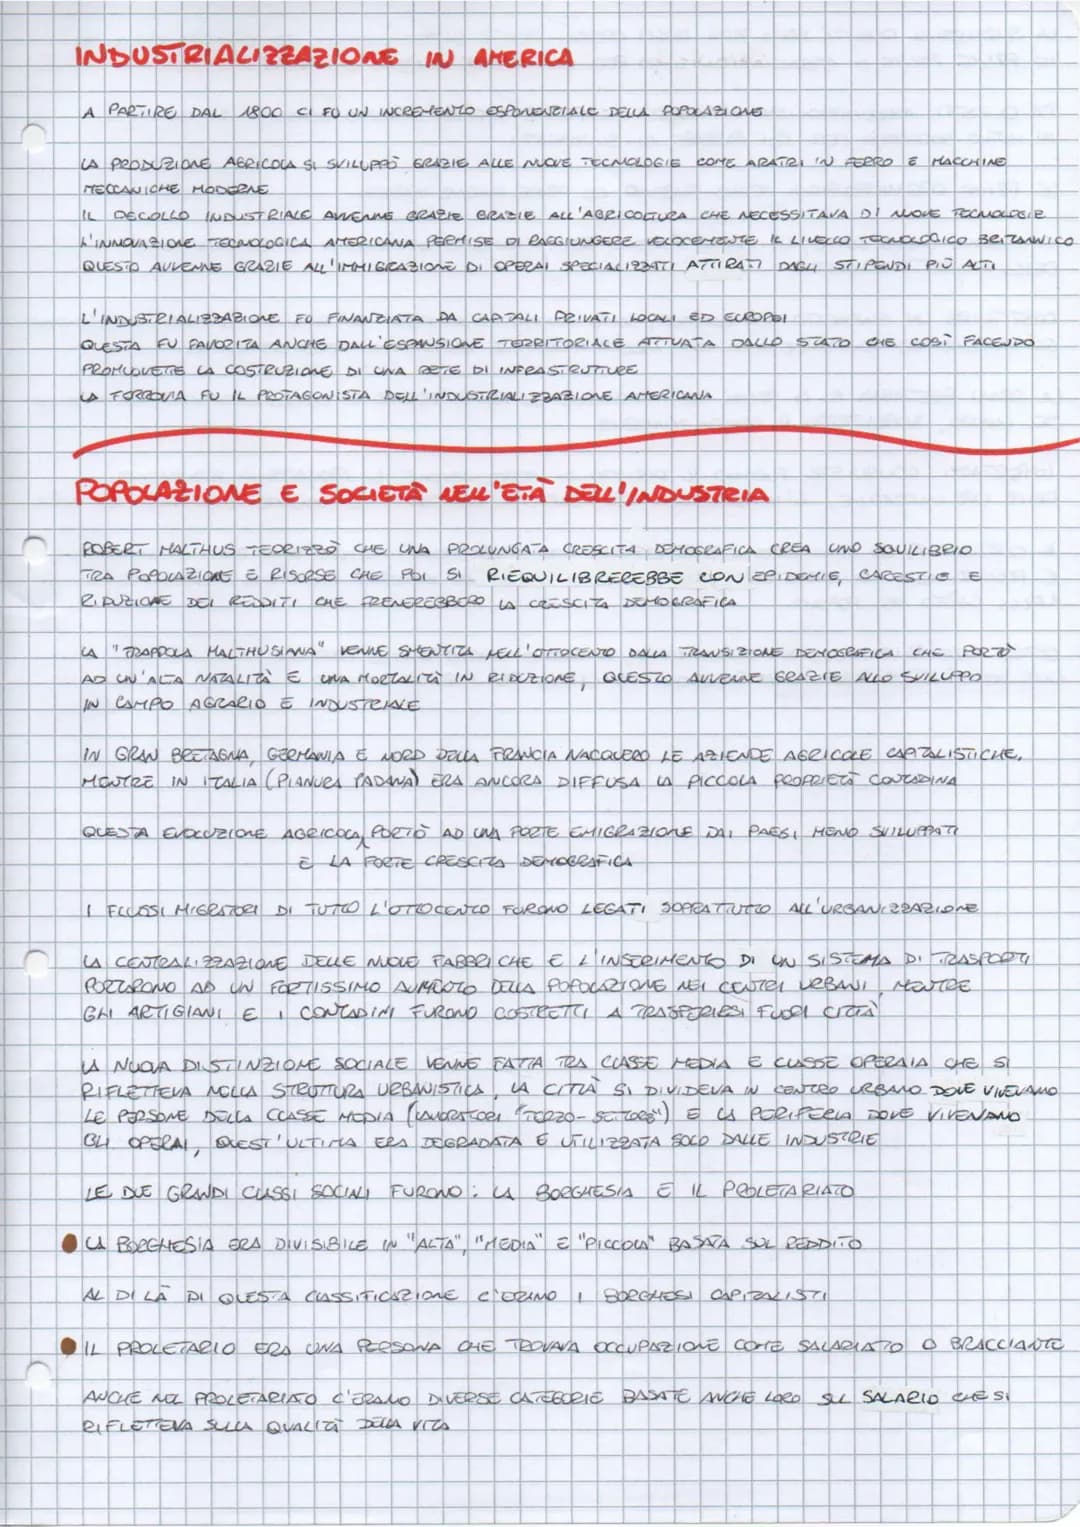 INDUSTRIALIZZAZIONE IN AMERICA
A PARTIRE DAL 1800 CI FU UN INCREMENTO ESPONENZIALE DELLA POPOLAZIONE
LA PRODUZIONE AGRICOLA SI SVILUPPÒ GRAZIE ALLE NUOVE TECNOLOGIE COME ARATRI IN FERRO E MACCHINE
MECCANICHE MODERNE
IL DECOLLO INDUSTRIALE AVVENNE GRAZIE GRAZIE ALL'AGRICOLTURA CHE NECESSITAVA DI NUOVE TECNOLOGIE
L'INNOVAZIONE TECNOLOGICA AMERICANA PERMISE DI RAGGIUNGERE VELOCEMENTE IL LIVELLO TECNOLOGICO BRITANNICO
QUESTO AVVENNE GRAZIE ALL'IMMIGRAZIONE DI OPERAI SPECIALIZZATI ATTIRATI DAGLI STIPENDI PIÙ ALTI
L'INDUSTRIALIZZAZIONE FU FINANZIATA DA CAPITALI PRIVATI LOCALI ED EUROPEI
QUESTA FU FAVORITA ANCHE DALL'ESPANSIONE TERRITORIALE ATTUATA DALLO STATO CHE COSÌ FACENDO
PROMUOVETTE LA COSTRUZIONE DI UNA RETE DI INFRASTRUTTURE
LA FERROVIA FU IL PROTAGONISTA DELL'INDUSTRIALIZZAZIONE AMERICANA
POPOLAZIONE E SOCIETÀ NELL'ETÀ DELL'INDUSTRIA
ROBERT MALTHUS TEORIZZÒ CHE UNA PROLUNGATA CRESCITA DEMOGRAFICA CREA UNO SQUILIBRIO
TRA POPOLAZIONE E RISORSE CHE POI SI RIEQUILIBREREBBE CON EPIDEMIE, CARESTIE E
RIDUZIONE DEI REDDITI CHE FRENEREBBERO LA CRESCITA DEMOGRAFICA
LA "TRAPPOLA MALTHUSIANA" VENNE SMENTITA NELL'OTTOCENTO DALLA TRANSIZIONE DEMOGRAFICA CHE PORTÒ
AD UN'ALTA NATALITÀ E UNA MORTALITÀ IN RIDUZIONE, QUESTO AVVENNE GRAZIE ALLO SVILUPPO
IN CAMPO AGRARIO E INDUSTRIALE
IN GRAN BRETAGNA, GERMANIA E NORD DELLA FRANCIA NACQUERO LE AZIENDE AGRICOLE CAPITALISTICHE,
MENTRE IN ITALIA (PIANURA PADANA) ERA ANCORA DIFFUSA LA PICCOLA PROPRIETÀ CONTADINA
QUESTA EVOLUZIONE AGRICOLA PORTÒ AD UNA FORTE EMIGRAZIONE DAI PAESI MENO SVILUPPATI
E LA FORTE CRESCITA DEMOGRAFICA
I FLUSSI MIGRATORI DI TUTTO L'OTTOCENTO FURONO LEGATI SOPRATTUTTO ALL'URBANIZZAZIONE
LA CENTRALIZZAZIONE DELLE NUOVE FABBRICHE E L'INSERIMENTO DI UN SISTEMA DI TRASPORTI
PORTARONO AD UN FORTISSIMO AUMENTO DELLA POPOLAZIONE NEI CENTRI URBANI, MENTRE
GLI ARTIGIANI E I CONTADINI FURONO COSTRETTI A TRASFERIRSI FUORI CITTÀ
LA NUOVA DISTINZIONE SOCIALE VENNE FATTA TRA CLASSE MEDIA E CLASSE OPERAIA CHE SI
RIFLETTEVA NELLA STRUTTURA URBANISTICA, LA CITTÀ SI DIVIDEVA IN CENTRO URBANO DOVE VIVEVANO
LE PERSONE DELLA CLASSE MEDIA (LAVORATORI "TERZO-SETTORE") E LA PERIFERIA DOVE VIVEVANO
GLI OPERAI, QUEST'ULTIMA ERA DEGRADATA E UTILIZZATA SOLO DALLE INDUSTRIE
LE DUE GRANDI CLASSI SOCIALI FURONO: LA BORGHESIA E IL PROLETARIATO
LA BORGHESIA ERA DIVISIBILE IN "ALTA", "MEDIA" E "PICCOLA" BASATA SUL REDDITO
AL DI LÀ DI QUESTA CLASSIFICAZIONE C'ERANO I BORGHESI CAPITALISTI
IL PROLETARIO ERA UNA PERSONA CHE TROVAVA OCCUPAZIONE COME SALARIATO O BRACCIANTE
ANCHE NEL PROLETARIATO C'ERANO DIVERSE CATEGORIE BASATE ANCHE LORO SUL SALARIO CHE SI
RIFLETTEVA SULLA QUALITÀ DELLA VITA